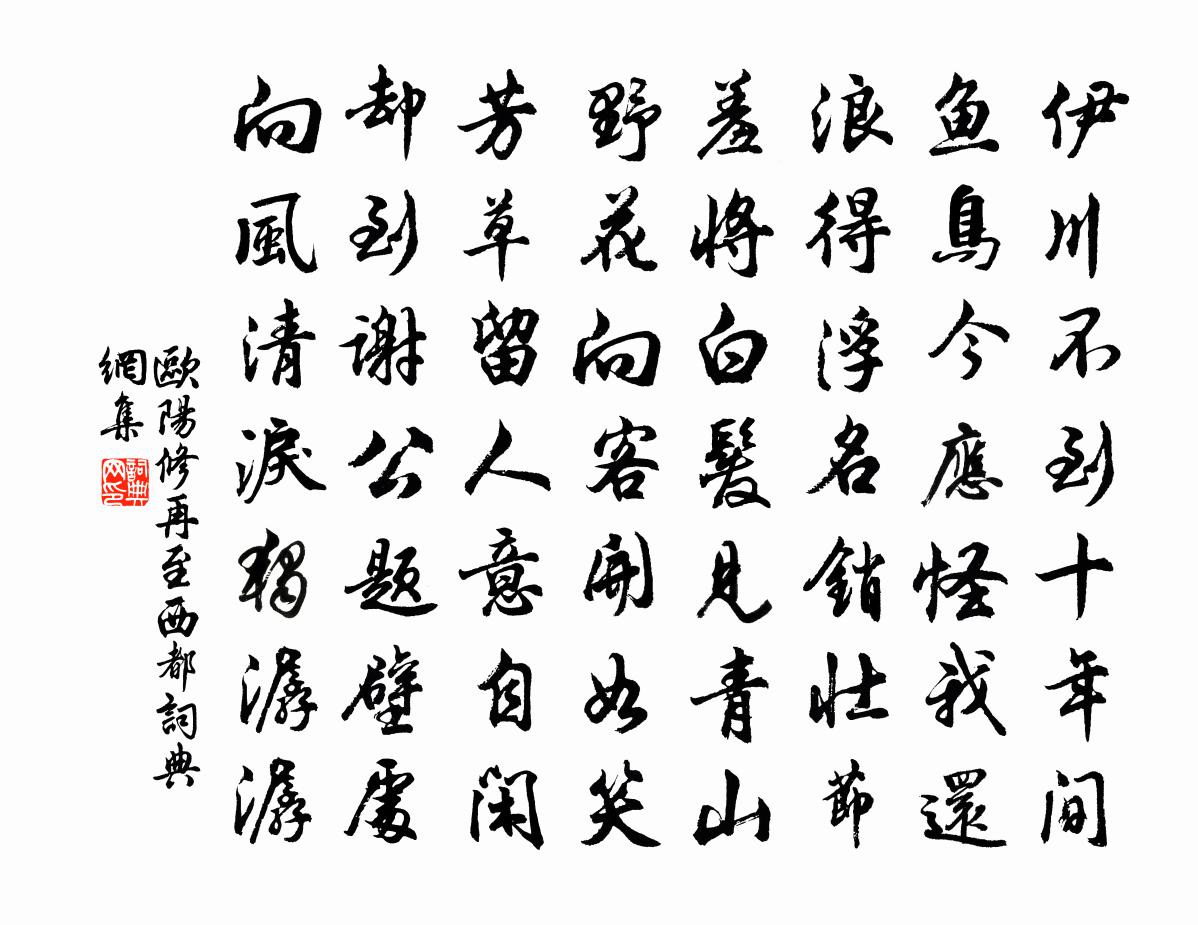 伊川不到十年间
鱼鳥今應怪我還
浪得浮名銷壮節
羞將白髮見青山
野花向客開如笑
芳草留人意自閑
却到謝公題壁處
向風清淚獨潺潺
歐陽修再至西都詞典
網集
詞典
网印